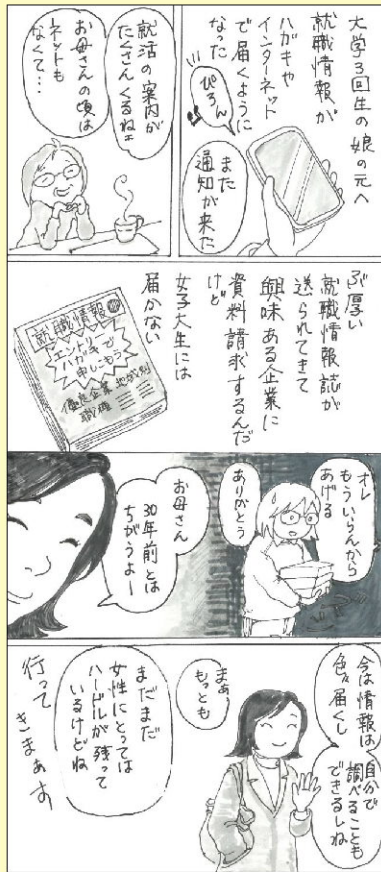 大学3回生の娘の元へ
就職情報が
ハガキや
インターネット
で届くように
なった
ぴろん
また
通知が来た
就活の案内が
たくさんくるねェ
お母さんの頃は
ネットも
なくて…
ぶ厚い
就職情報誌が
送られてきて
興味ある企業に
資料請求するんだ
けど
女子大生には
届かない
就職情報
エントリー
ハガキで
申しこもう
優良企業
地域別
職種
オレ
もういらんから
あげる
ありがとう
お母さん
30年前とは
ちがうよー
今は情報は
色々届くし
自分で
調べることも
できるしね
まぁ
もっとも
まだまだ
女性にとっては
ハードルが残って
いるけどね
行って
きまぁす